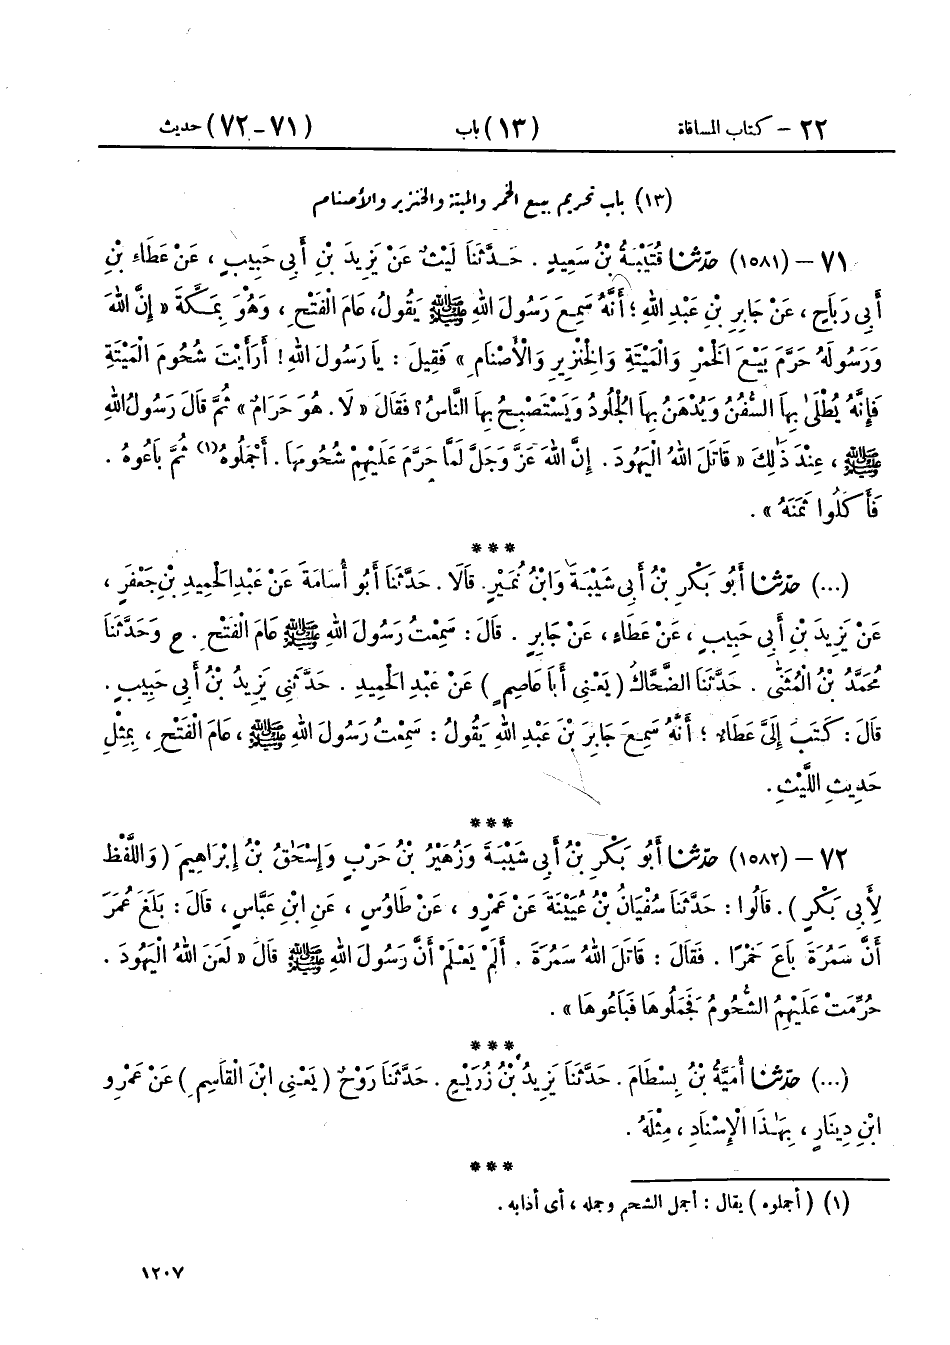 ٢٢ - كتاب المساقاة (١٣) باب (٧١ - ٧٢) حديث
(١٣) باب تحريم بيع الخمر والميتة والخنزير والأصنام
٧١ - (١٥٨١) حدّثنا قُتَيْبَةُ بْنُ سَعِيدٍ . حَدَّثَنَا لَيْثٌ عَنْ يَزِيدَ بْنِ أَبِي حَبِيبٍ ، عَنْ عَطَاءِ بْنِ
أَبِي رَبَاحٍ ، عَنْ جَابِرِ بْنِ عَبْدِ اللهِ ؛ أَنَّهُ سَمِعَ رَسُولَ اللهِ ﷺ يَقُولُ، عَامَ الْفَتْحِ ، وَهُوَ بِمَكَّةَ « إِنَّ اللهَ
وَرَسُولَهُ حَرَّمَ بَيْعَ الْخَمْرِ وَالْمَيْتَةِ وَالْخِنْزِيرِ وَالْأَصْنَامِ » فَقِيلَ : يَا رَسُولَ اللهِ! أَرَأَيْتَ شُحُومَ الْمَيْتَةِ
فَإِنَّهُ يُطْلَىٰ بِهَا السُّفُنُ وَيُدْهَنُ بِهَا الْجُلُودُ وَيَسْتَصْبِحُ بِهَا النَّاسُ؟ فَقَالَ « لَا. هُوَ حَرَامٌ » ثُمَّ قَالَ رَسُولُ اللهِ
ﷺ ، عِنْدَ ذَٰلِكَ « قَاتَلَ اللهُ الْيَهُودَ . إِنَّ اللهَ عَزَّ وَجَلَّ لَمَّا حَرَّمَ عَلَيْهِمْ شُحُومَهَا . أَجْمَلُوهُ(١) ثُمَّ بَاعُوهُ .
فَأَكَلُوا ثَمَنَهُ » .
***
(...) حدّثنا أَبُو بَكْرِ بْنُ أَبِي شَيْبَةَ وَابْنُ نُمَيْرٍ. قَالَا . حَدَّثَنَا أَبُو أُسَامَةَ عَنْ عَبْدِ الْحَمِيدِ بْنِ جَعْفَرٍ ،
عَنْ يَزِيدَ بْنِ أَبِي حَبِيبٍ ، عَنْ عَطَاءٍ ، عَنْ جَابِرٍ . قَالَ : سَمِعْتُ رَسُولَ اللهِ ﷺ عَامَ الْفَتْحِ . ح وَحَدَّثَنَا
مُحَمَّدُ بْنُ الْمُثَنَّى . حَدَّثَنَا الضَّحَّاكُ ( يَعْنِي أَبَا عَاصِمٍ ) عَنْ عَبْدِ الْحَمِيدِ . حَدَّثَنِي يَزِيدُ بْنُ أَبِي حَبِيبٍ .
قَالَ : كَتَبَ إِلَيَّ عَطَاءٌ ؛ أَنَّهُ سَمِعَ جَابِرَ بْنَ عَبْدِ اللهِ يَقُولُ : سَمِعْتُ رَسُولَ اللهِ ﷺ ، عَامَ الْفَتْحِ ، بِمِثْلِ
حَدِيثِ اللَّيْثِ .
***
٧٢ - (١٥٨٢) حدّثنا أَبُو بَكْرِ بْنُ أَبِي شَيْبَةَ وَزُهَيْرُ بْنُ حَرْبٍ وَإِسْحَاقُ بْنُ إِبْرَاهِيمَ ( وَاللَّفْظُ
لِأَبِي بَكْرٍ ) . قَالُوا : حَدَّثَنَا سُفْيَانُ بْنُ عُيَيْنَةَ عَنْ عَمْرٍو ، عَنْ طَاوُسٍ ، عَنِ ابْنِ عَبَّاسٍ ، قَالَ : بَلَغَ عُمَرَ
أَنَّ سَمُرَةَ بَاعَ خَمْرًا . فَقَالَ : قَاتَلَ اللهُ سَمُرَةَ . أَلَمْ يَعْلَمْ أَنَّ رَسُولَ اللهِ ﷺ قَالَ « لَعَنَ اللهُ الْيَهُودَ .
حُرِّمَتْ عَلَيْهِمُ الشُّحُومُ فَجَمَلُوهَا فَبَاعُوهَا » .
***
(...) حدّثنا أُمَيَّةُ بْنُ بِسْطَامَ . حَدَّثَنَا يَزِيدُ بْنُ زُرَيْعٍ . حَدَّثَنَا رَوْحٌ ( يَعْنِي ابْنَ الْقَاسِمِ ) عَنْ عَمْرِو
ابْنِ دِينَارٍ ، بِهَٰذَا الْإِسْنَادِ ، مِثْلَهُ .
***
(١) ( أجملوه ) يقال : أجمل الشحم وجمله ، أى أذابه .
١٢٠٧